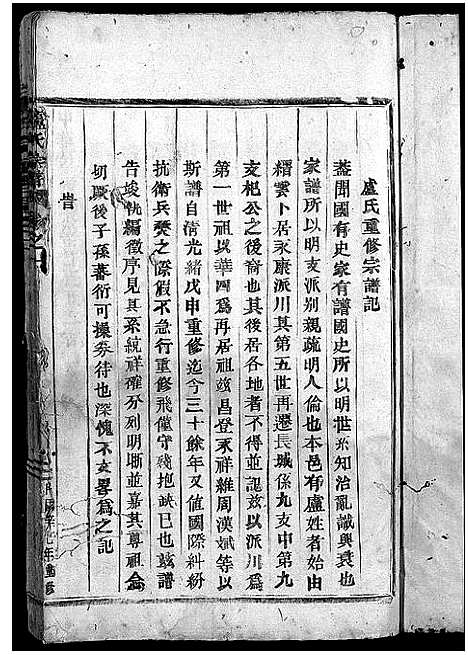 盧氏重修宗譜記
蓋聞國有史家有譜國史所以明世系知治亂識興衰也
家譜所以明支派别親疏明人倫也本邑有盧姓者始由
縉雲卜居永康派川其第五世再遷長城係九支中第九
支杞公之後裔也其後居各地者不得並認茲以派川爲
第一世祖以華四爲再居祖茲昌登永祥雅周漢斌等以
斯譜自清光緒戊申重修迄今三十餘年又值國際糾紛
抗衛兵燹之際假不急行重修飛僅守殘抱缺已也茲譜
告竣仇編徵序見其系統祥確分列明晰並嘉其尊祖念
切厥後子孫蕃衍可操券待也深愧不文畧爲之記
旹